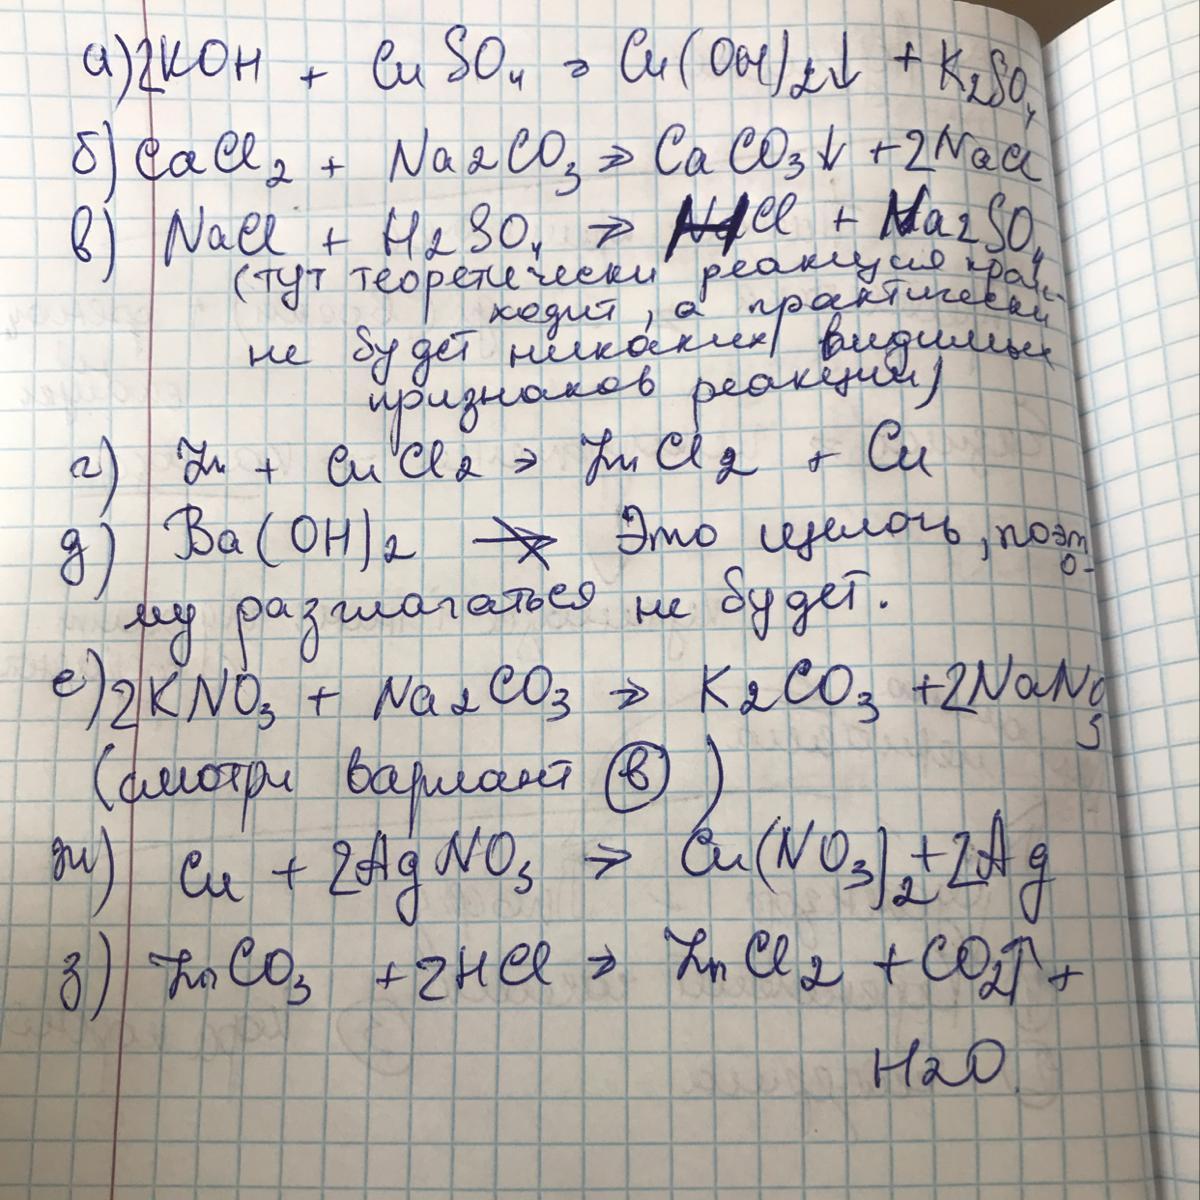 а) 2KOH + CuSO4 → Cu(OH)2↓ + K2SO4
б) CaCl2 + Na2CO3 → CaCO3↓ + 2NaCl
в) NaCl + H2SO4 → HCl + Na2SO4
(тут теоретически реакция проис-
ходит, а практически
не будет никаких видимых
признаков реакции)
г) Zn + CuCl2 → ZnCl2 + Cu
д) Ba(OH)2 → Это щелочь, поэто-
му разглагаться не будет.
е) 2KNO3 + Na2CO3 → K2CO3 + 2NaNO3
(смотри вариант в)
ж) Cu + 2AgNO3 → Cu(NO3)2 + 2Ag
з) ZnCO3 + 2HCl → ZnCl2 + CO2↑ +
H2O.